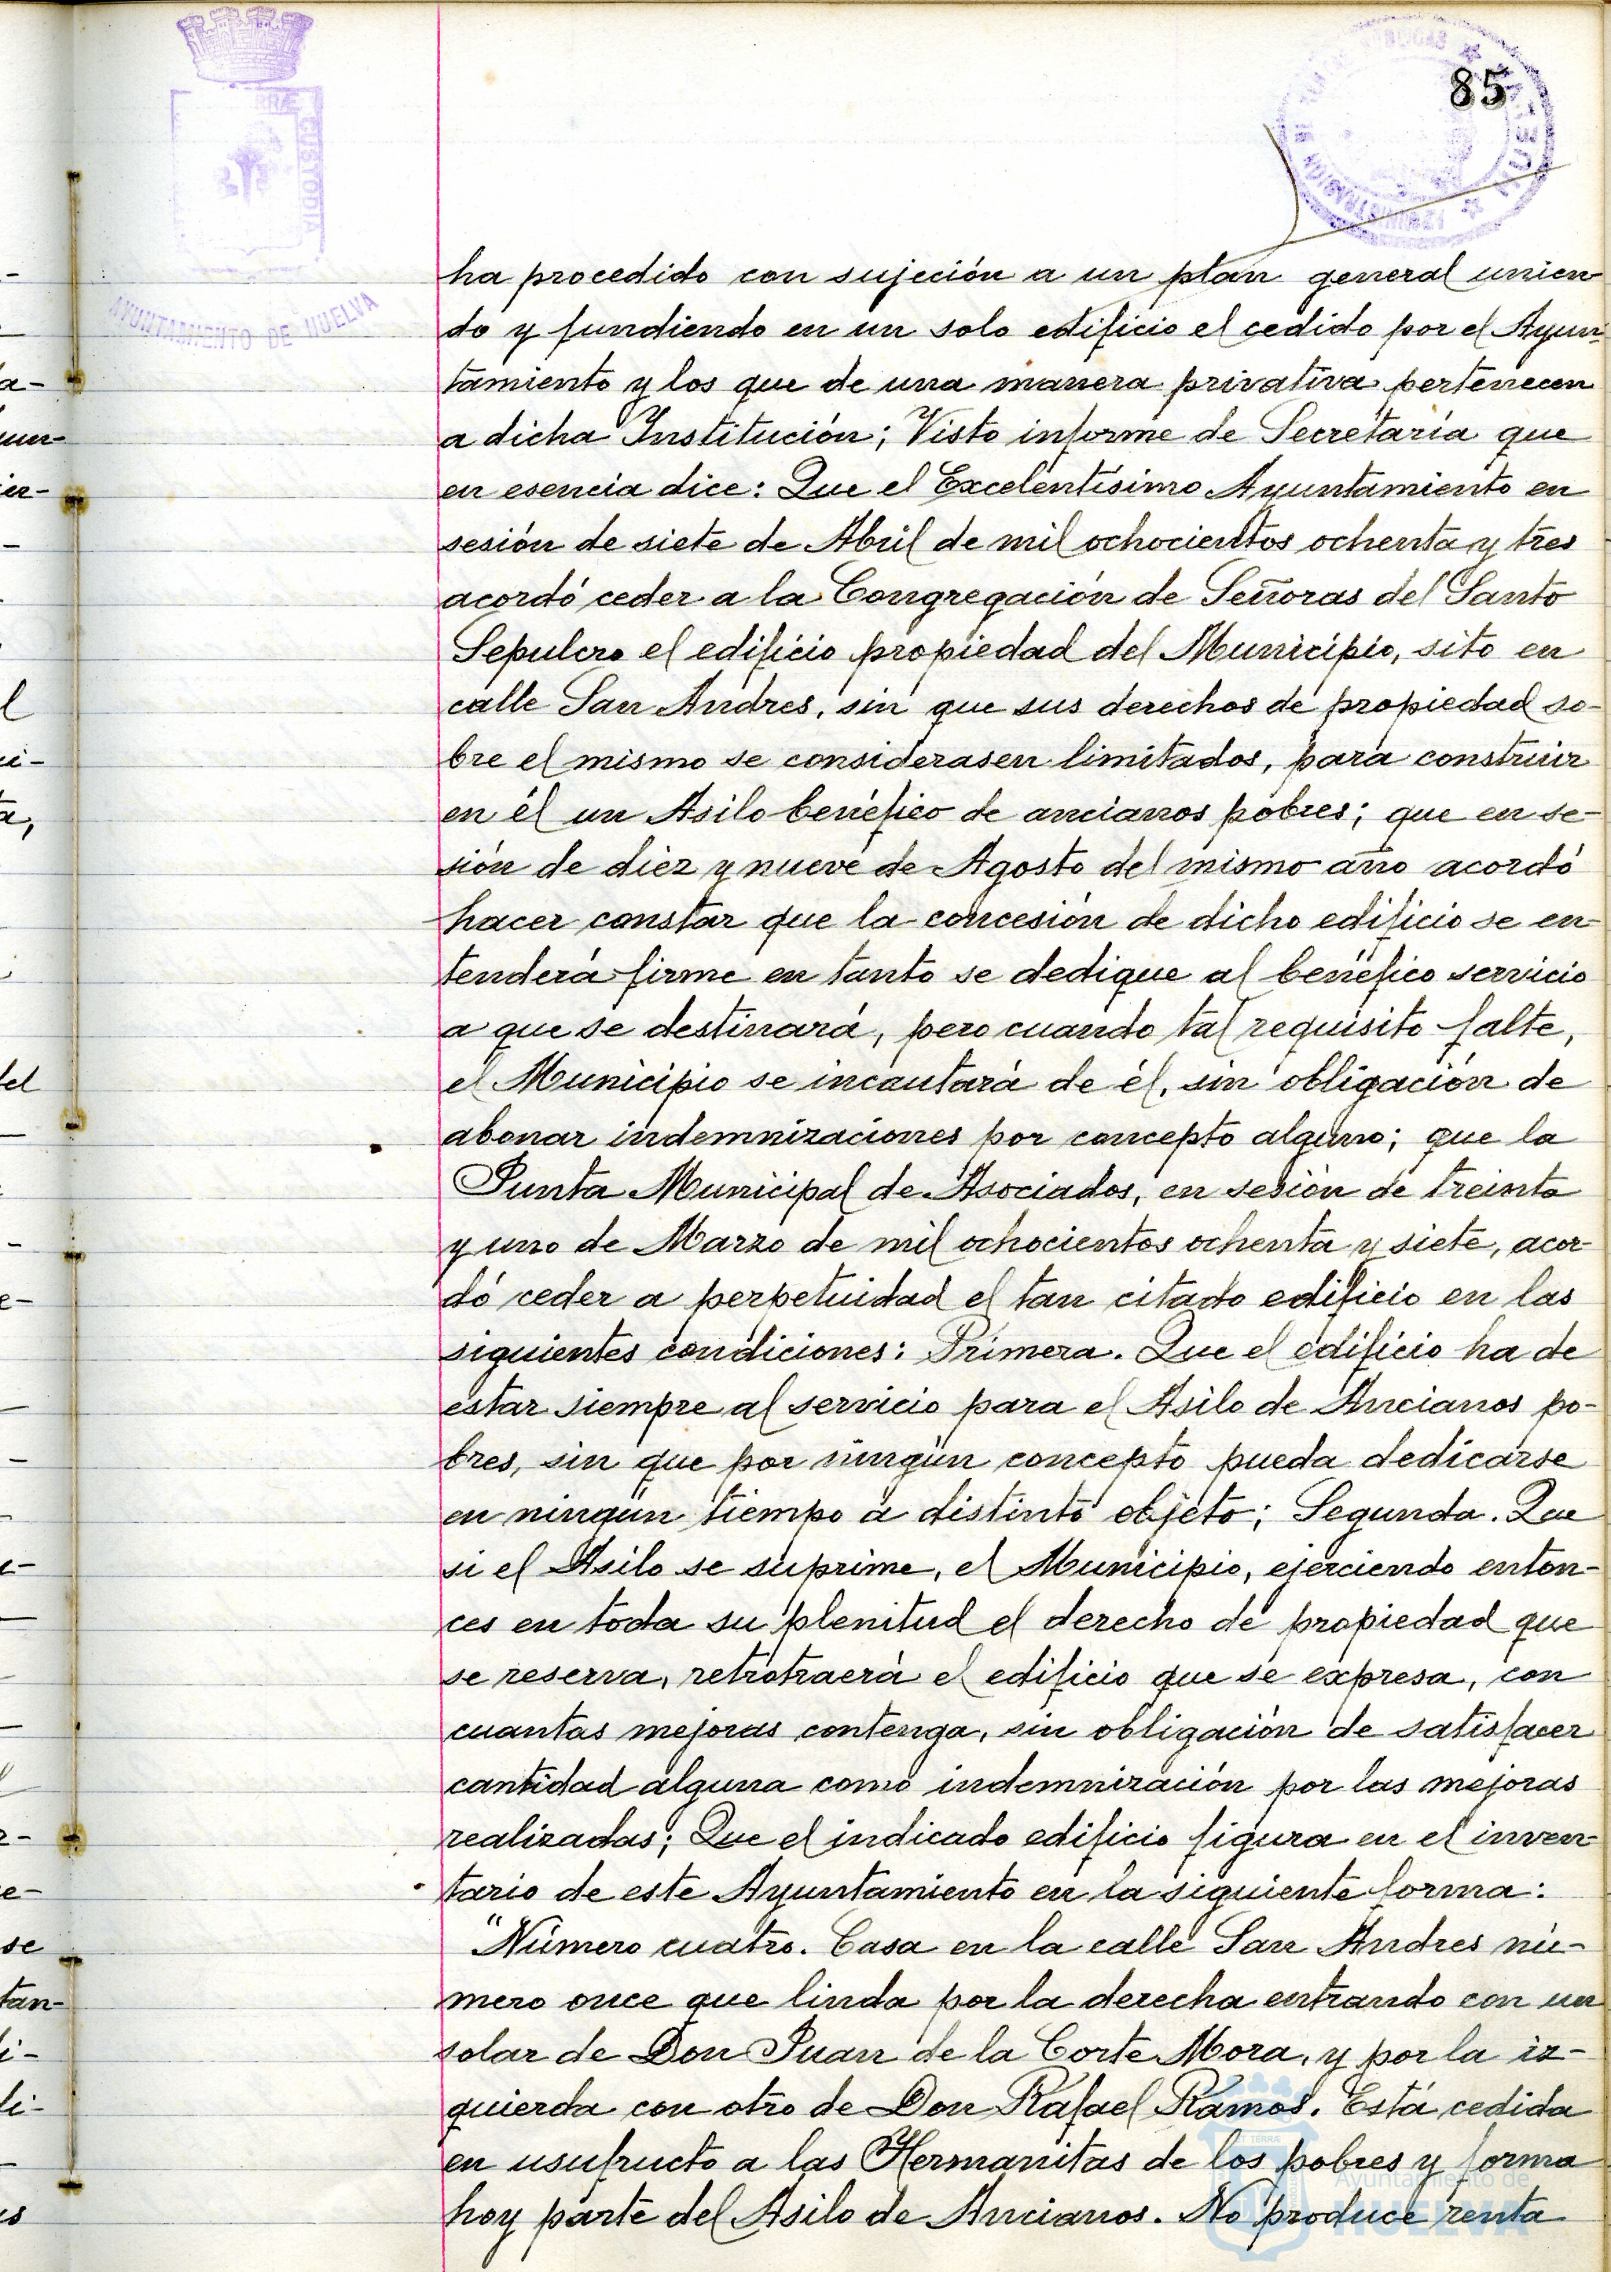 85
BRÆ CUSTODIA
AYUNTAMIENTO DE HUELVA
ha procedido con sujeción a un plan general unien-
do y fundiendo en un solo edificio el cedido por el Ayun-
tamiento y los que de una manera privativa pertenecen
a dicha Institución; Visto informe de Secretaría que
en esencia dice: Que el Excelentísimo Ayuntamiento en
sesión de siete de Abril de mil ochocientos ochenta y tres
acordó ceder a la Congregación de Señoras del Santo
Sepulcro el edificio propiedad del Municipio, sito en
calle San Andres, sin que sus derechos de propiedad so-
bre el mismo se considerasen limitados, para construir
en él un Asilo benéfico de ancianos pobres; que en se-
sión de diez y nueve de Agosto del mismo año acordó
hacer constar que la concesión de dicho edificio se en-
tenderá firme en tanto se dedique al benéfico servicio
a que se destinará, pero cuando tal requisito falte,
el Municipio se incautará de él, sin obligación de
abonar indemnizaciones por concepto alguno; que la
Junta Municipal de Asociados, en sesión de treinta
y uno de Marzo de mil ochocientos ochenta y siete, acor-
dó ceder a perpetuidad el tan citado edificio en las
siguientes condiciones: Primera. Que el edificio ha de
estar siempre al servicio para el Asilo de Ancianos po-
bres, sin que por ningún concepto pueda dedicarse
en ningún tiempo a distinto objeto; Segunda. Que
si el Asilo se suprime, el Municipio, ejerciendo enton-
ces en toda su plenitud el derecho de propiedad que
se reserva, retrotraerá el edificio que se expresa, con
cuantas mejoras contenga, sin obligación de satisfacer
cantidad alguna como indemnización por las mejoras
realizadas; Que el indicado edificio figura en el inven-
tario de este Ayuntamiento en la siguiente forma:
"Número cuatro. Casa en la calle San Andres nú-
mero once que linda por la derecha entrando con un
solar de Don Juan de la Corte Mora, y por la iz-
quierda con otro de Don Rafael Ramos. Está cedida
en usufructo a las Hermanitas de los pobres y forma
hoy parte del Asilo de Ancianos. No produce renta
Ayuntamiento de
HUELVA